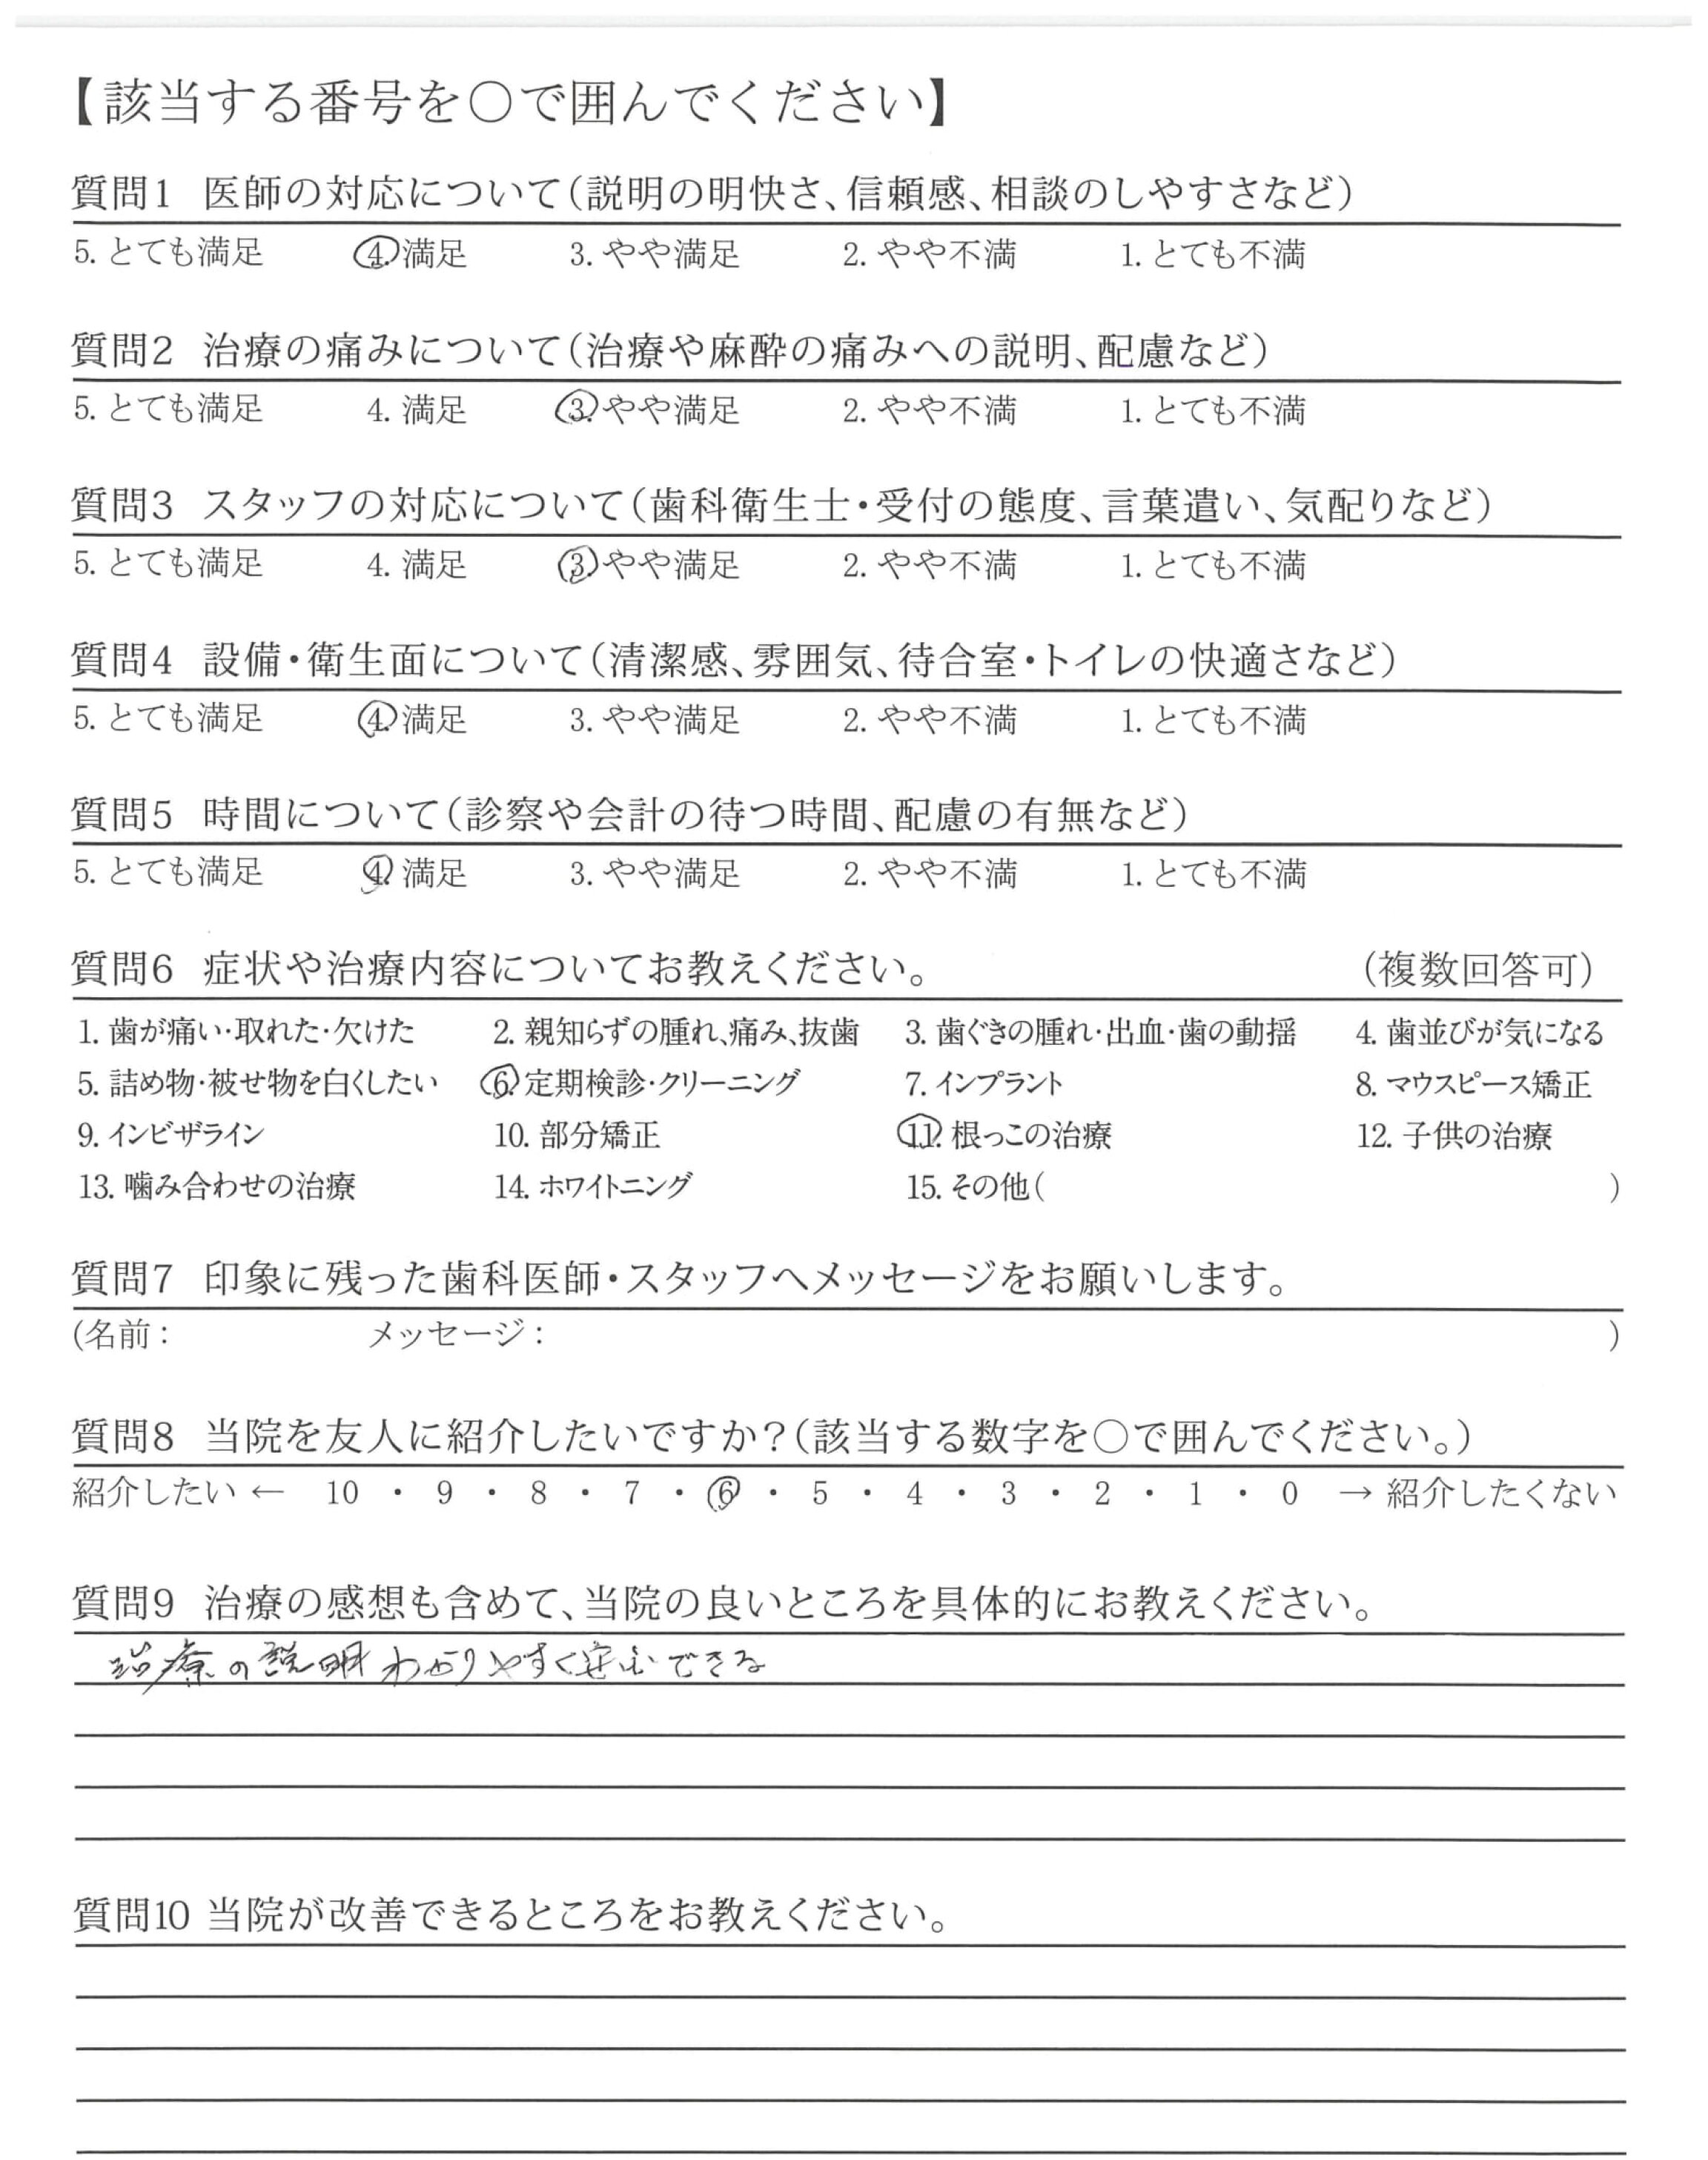 【該当する番号を○で囲んでください】
質問1 医師の対応について（説明の明快さ、信頼感、相談のしやすさなど）
5. とても満足 4. 満足 3. やや満足 2. やや不満 1. とても不満
質問2 治療の痛みについて（治療や麻酔の痛みへの説明、配慮など）
5. とても満足 4. 満足 3. やや満足 2. やや不満 1. とても不満
質問3 スタッフの対応について（歯科衛生士・受付の態度、言葉遣い、気配りなど）
5. とても満足 4. 満足 3. やや満足 2. やや不満 1. とても不満
質問4 設備・衛生面について（清潔感、雰囲気、待合室・トイレの快適さなど）
5. とても満足 4. 満足 3. やや満足 2. やや不満 1. とても不満
質問5 時間について（診察や会計の待つ時間、配慮の有無など）
5. とても満足 4. 満足 3. やや満足 2. やや不満 1. とても不満
質問6 症状や治療内容についてお教えください。 （複数回答可）
1. 歯が痛い・取れた・欠けた 2. 親知らずの腫れ、痛み、抜歯 3. 歯ぐきの腫れ・出血・歯の動揺 4. 歯並びが気になる
5. 詰め物・被せ物を白くしたい 6. 定期検診・クリーニング 7. インプラント 8. マウスピース矯正
9. インビザライン 10. 部分矯正 11. 根っこの治療 12. 子供の治療
13. 噛み合わせの治療 14. ホワイトニング 15. その他（ ）
質問7 印象に残った歯科医師・スタッフへメッセージをお願いします。
（名前： メッセージ： ）
質問8 当院を友人に紹介したいですか？（該当する数字を○で囲んでください。）
紹介したい ← 10 ・ 9 ・ 8 ・ 7 ・ 6 ・ 5 ・ 4 ・ 3 ・ 2 ・ 1 ・ 0 → 紹介したくない
質問9 治療の感想も含めて、当院の良いところを具体的にお教えください。
治療の説明わかりやすく安心できる
質問10 当院が改善できるところをお教えください。